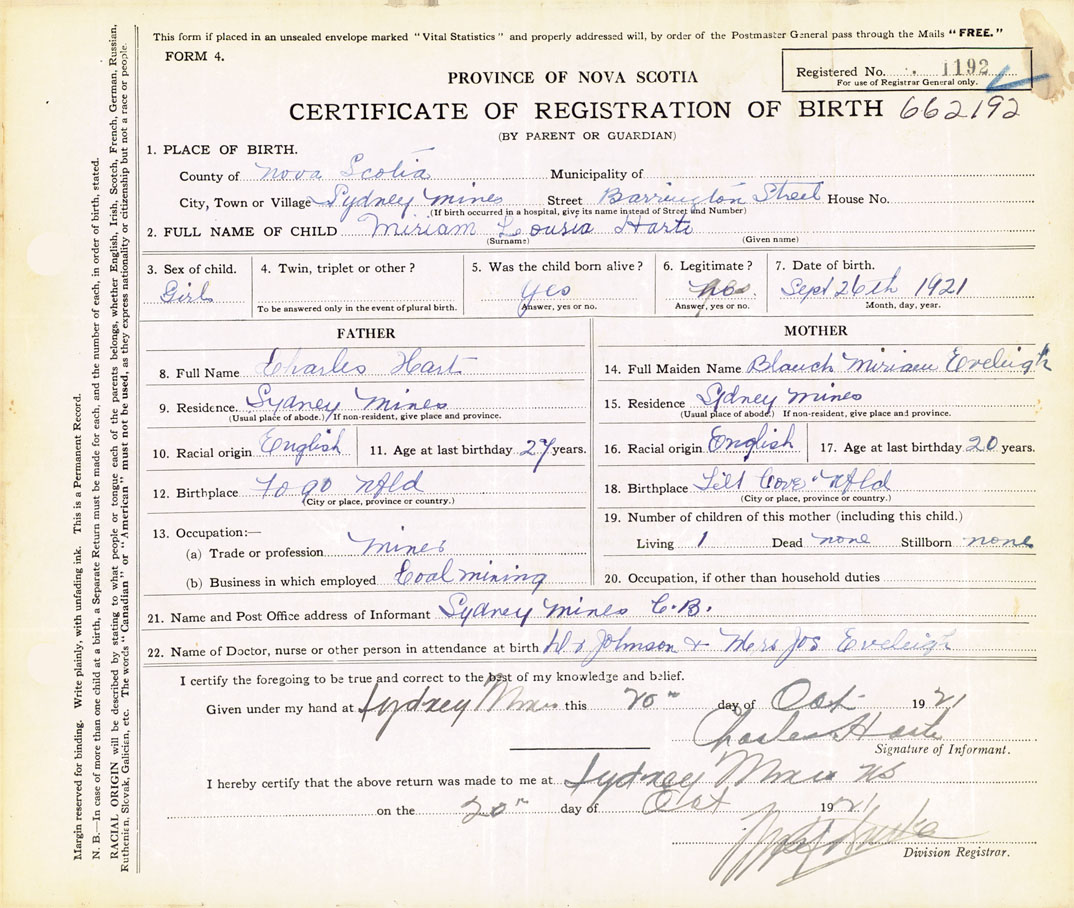 This form if placed in an unsealed envelope marked "Vital Statistics" and properly addressed will, by order of the Postmaster General pass through the Mails "FREE."
FORM 4.
Registered No. 1192
For use of Registrar General only.
PROVINCE OF NOVA SCOTIA
CERTIFICATE OF REGISTRATION OF BIRTH 662192
(BY PARENT OR GUARDIAN)
1. PLACE OF BIRTH.
County of Nova Scotia Municipality of
City, Town or Village Sydney Mines Street Barrington Street House No.
(If birth occurred in a hospital, give its name instead of Street and Number)
2. FULL NAME OF CHILD Miriam Lousia Harte
(Surname) (Given name)
3. Sex of child. 4. Twin, triplet or other? 5. Was the child born alive? 6. Legitimate? 7. Date of birth.
Girl yes Sept 26th 1921
To be answered only in the event of plural birth. (Answer, yes or no. Answer, yes or no. Month, day, year.
FATHER
8. Full Name Charles Hart
9. Residence. Sydney Mines
(Usual place of abode.) If non-resident, give place and province.
10. Racial origin English 11. Age at last birthday 27 years.
12. Birthplace To go Nfld
(City or place, province or country.)
13. Occupation:—
(a) Trade or profession Miner
(b) Business in which employed Coal mining
MOTHER
14. Full Maiden Name Blanch Miriam Eveleigh
15. Residence Sydney Mines
(Usual place of abode.) If non-resident, give place and province.
16. Racial origin English 17. Age at last birthday 20 years.
18. Birthplace Tilt Cove Nfld
(City or place, province or country.)
19. Number of children of this mother (including this child.)
Living 1 Dead none Stillborn none
20. Occupation, if other than household duties
21. Name and Post Office address of Informant Sydney Mines C.B.
22. Name of Doctor, nurse or other person in attendance at birth Dr Johnson & Mrs Jos Eveleigh
I certify the foregoing to be true and correct to the best of my knowledge and belief.
Given under my hand at Sydney Mines this 20th day of Oct 1921
Charles Harte
Signature of Informant.
I hereby certify that the above return was made to me at Sydney Mines NS
on the 20th day of Oct 1921
Division Registrar.
Margin reserved for binding. Write plainly, with unfading ink. This is a Permanent Record.
N. B.—In case of more than one child at a birth, a Separate Return must be made for each, and the number of each, in order of birth, stated.
RACIAL ORIGIN will be described by stating to what people or tongue each of the parents belongs, whether English, Irish, Scotch, French, German, Russian,
Ruthenian, Slovak, Galician, etc. The words "Canadian" or "American" must not be used, as they express nationality or citizenship but not a race or people.